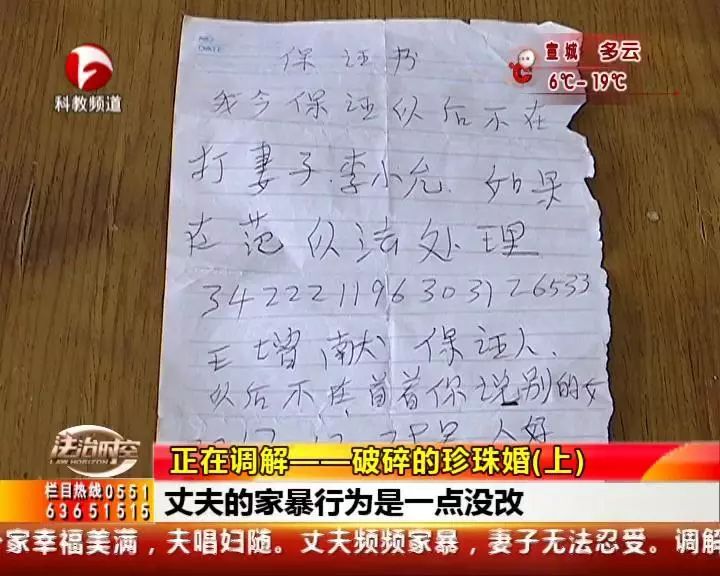 科教频道
宣城 多云
6℃-19℃
NO.
DATE
保证书
我今保证以后不在
打妻子.李小允.如果
在范以法处理
342221196303126533
王增献 保证人.
以后不在当着你说别的女
人好
法治时空
LAW HORIZON
正在调解——破碎的珍珠婚(上)
栏目热线0551
63651515
丈夫的家暴行为是一点没改
家幸福美满，夫唱妇随。丈夫频频家暴，妻子无法忍受。调解